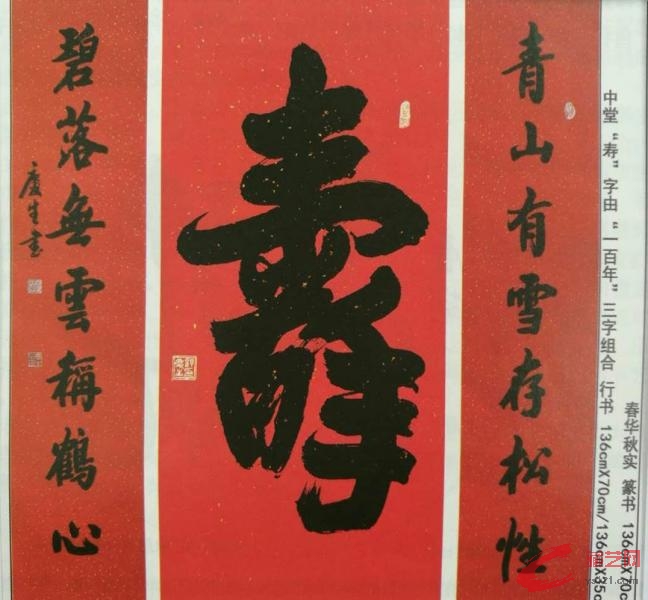 青山有雪存松性
壽
碧落無雲稱鶴心
慶生書
中堂“寿”字由“一百年”三字组合 行书 136cmX70cm/136cmX35c
春华秋实 篆书 136cmX70c